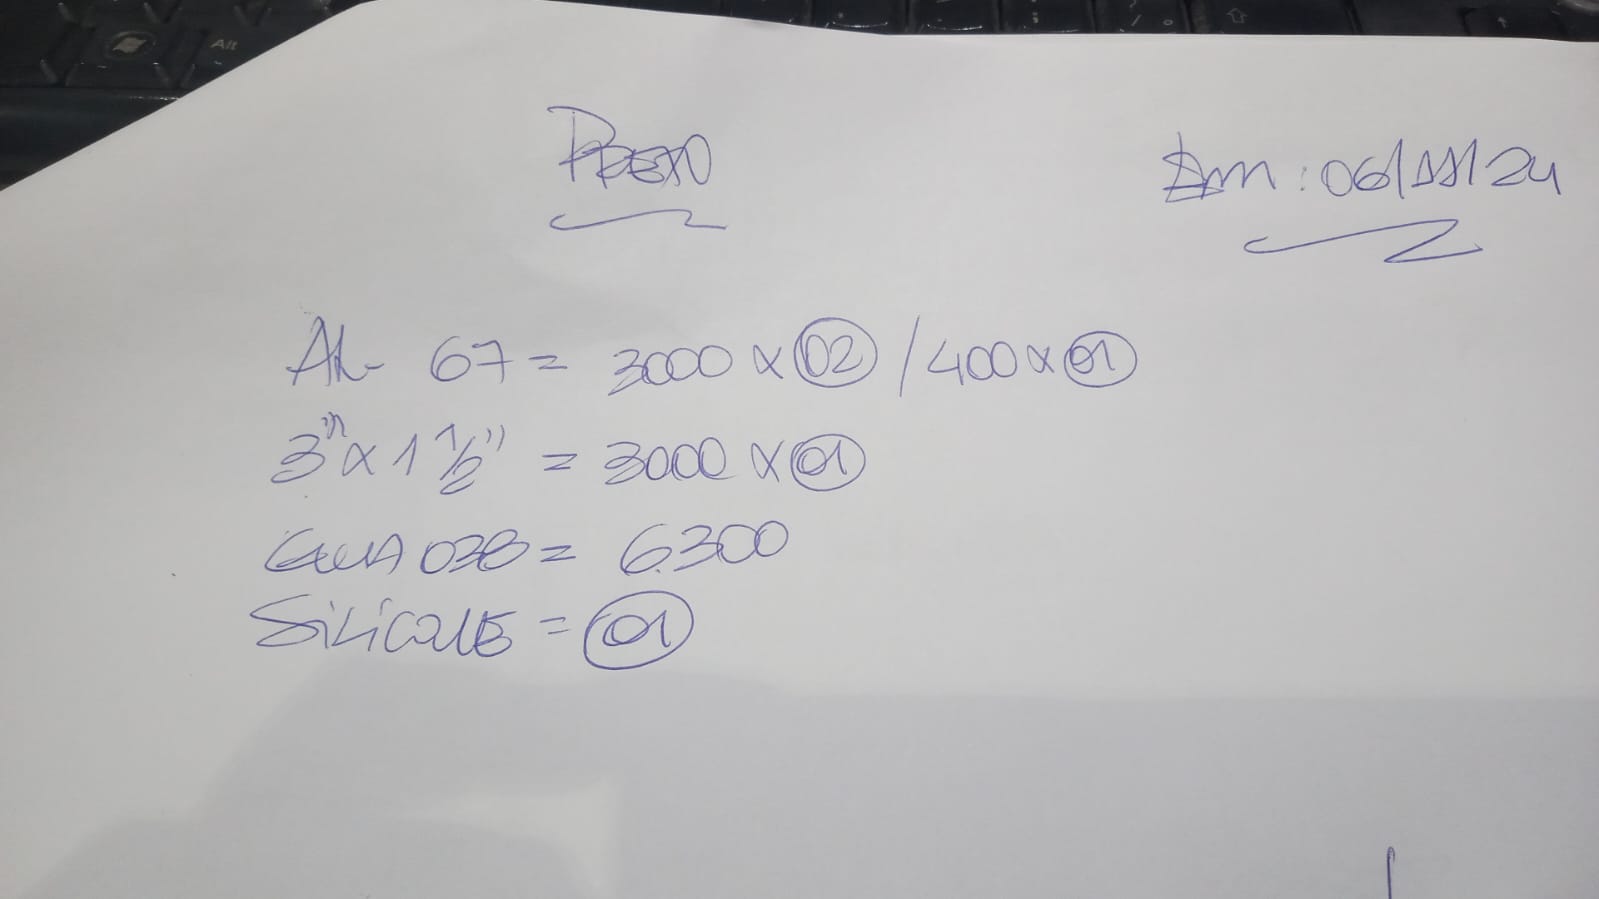 Em: 06/11/24
AL 67 = 3000 x 02 / 400 x 01
3" x 1 1/2" = 3000 x 01
GUA 038 = 6.300
SILICONE = 01